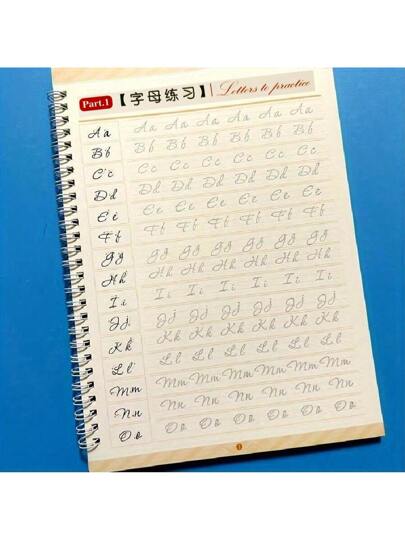 Part.1 【字母练习】 Letters to practice
Aa Aa Aa Aa Aa Aa Aa
Bb Bb Bb Bb Bb Bb Bb
Cc Cc Cc Cc Cc Cc Cc
Dd Dd Dd Dd Dd Dd Dd
Ee Ee Ee Ee Ee Ee Ee
Ff Ff Ff Ff Ff Ff Ff
Gg Gg Gg Gg Gg Gg Gg
Hh Hh Hh Hh Hh Hh Hh
Ii Ii Ii Ii Ii Ii Ii
Jj Jj Jj Jj Jj Jj Jj
Kk Kk Kk Kk Kk Kk Kk
Ll Ll Ll Ll Ll Ll Ll
Mm Mm Mm Mm Mm Mm Mm
Nn Nn Nn Nn Nn Nn Nn
Oo Oo Oo Oo Oo Oo Oo